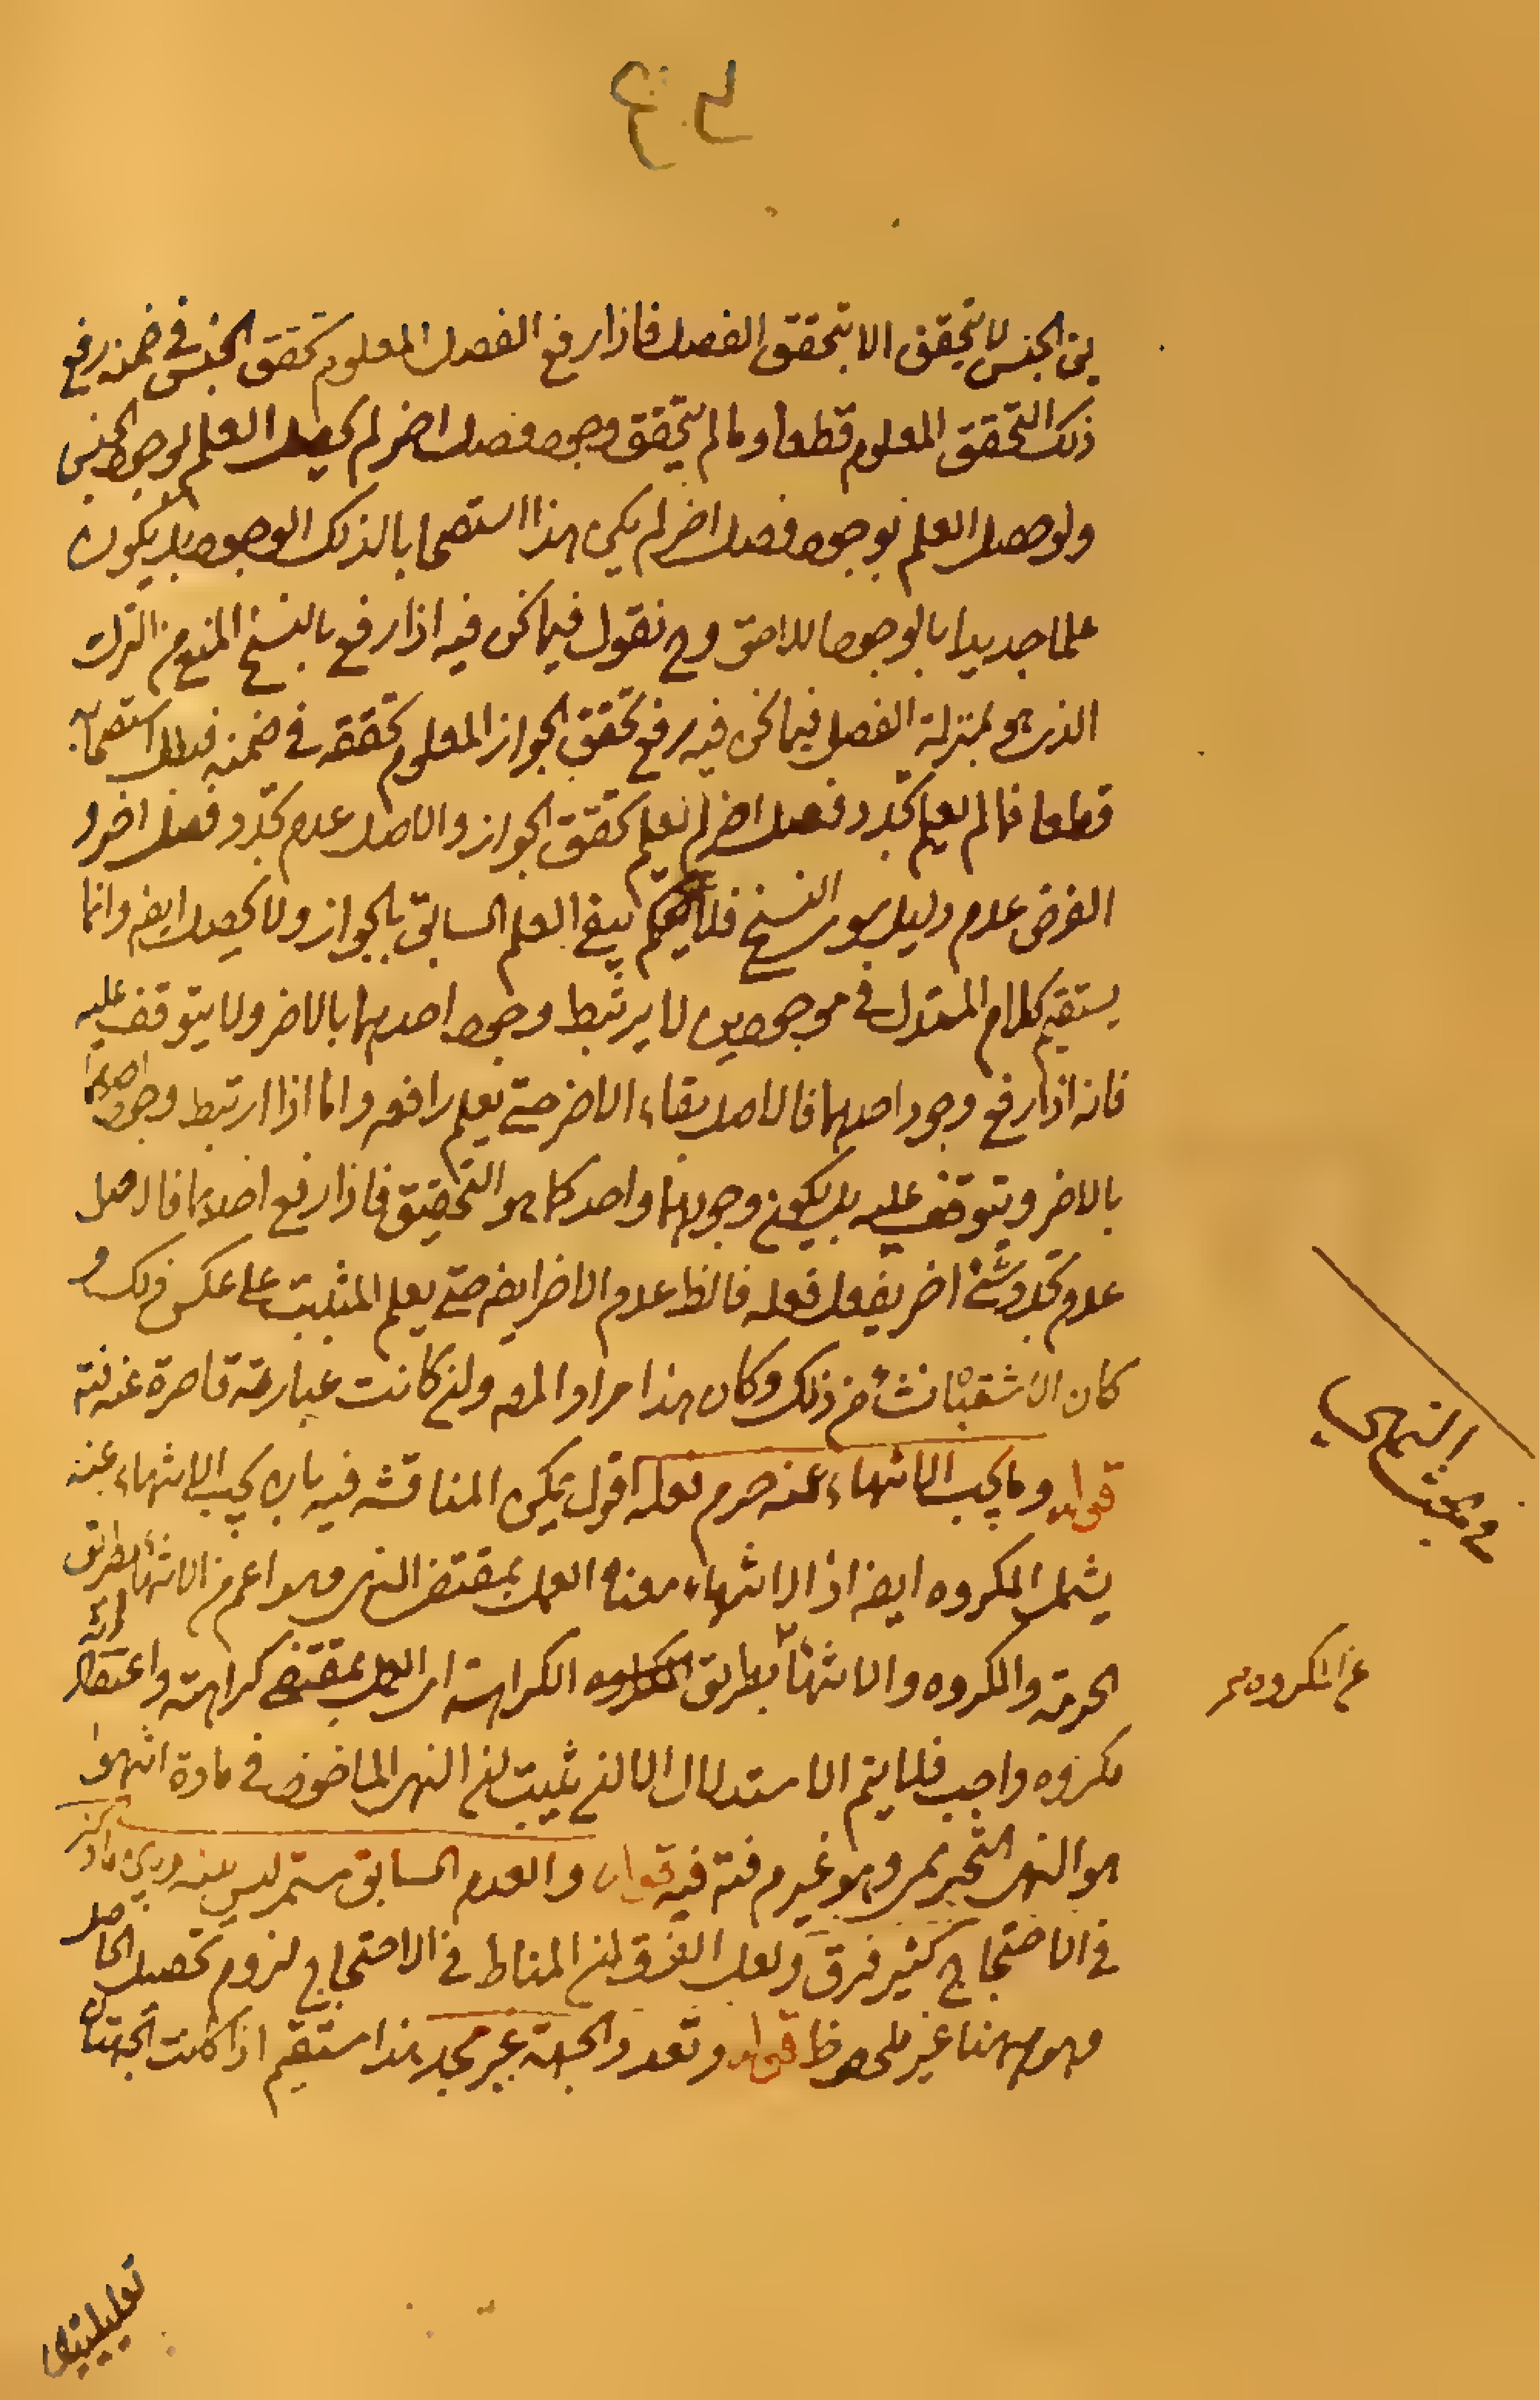 بين الجنس لا يتحقق الا بتحقق الفصل فاذا رفع الفصل المعلوم تحقق الجنس في ضمنه رفع
ذلك التحقق المعلوم قطعا وما لم يتحقق وجود فصل اخر لم يحصل العلم لوجود الجنس
ولو حصل العلم بوجود فصل اخر لم يكن هذا استصحابا لذلك الوجود بل يكون
علما جديدا بالوجود اللاحق وح نقول فيما نحن فيه اذا رفع بالنسخ المنع من الترك
الذى هو بمنزلة الفصل فيما نحن فيه رفع تحقق الجواز المعلوم تحققه في ضمنه فبطل استصحابه
قطعا فما لم يعلم تجدد فصل اخر لم يعلم تحقق الجواز والاصل عدم تجدد فصل اخر و
الفرض عدم دليل سوى النسخ فلا يبقى العلم السابق بالجواز ولا يحصل ايضا وانما
يستقيم كلام المستدل في موجودين لا يرتبط وجود احدهما بالاخر ولا يتوقف عليه
فانه اذا رفع وجود احدهما فالاصل بقاء الاخر حتى يعلم رافعه واما اذا ارتبط وجود احدهما
بالاخر ويتوقف عليه بل يكون وجودهما واحد كما هو التحقيق فاذا رفع احدهما فالاصل
عدم تجدد شئ اخر يفعل فعله فالظ عدم الاخر ايضا حتى يعلم المثبت على عكس ذلك و
كان الاشتباه نشأ من ذلك وكان هذا مراد المص وان كانت عبارته قاصرة عنه
قوله وما يجب الانتهاء عنه حرم فعله اقول يمكن المناقشة فيه بان يجب الانتهاء عنه
يشمل المكروه ايضا اذ الانتهاء معناه العمل بمقتضى النهى وهو اعم من الانتهاء بطريق
الحرمة والمكروه والانتهاء بطريق الكراهة اى العمل بمقتضى كراهته واعتقاد انه
مكروه واجب فلا يتم الاستدلال الا ان يثبت ان النهى الماخوذ في مادة انتهوا
هو النهى التحريمى وهو غير م فتة فيه قوله والعدم السابق مستمر ليس بينه وبين ما ذكر
في الاحتجاج كثير فرق ولعل الفرق ان المناط في الاحتجاج لزوم تحصيل الحاصل
وهو ههنا غير ملحوظ قوله وتعدد الجهة غير مجد هذا مستقيم اذا كانت الجهتان
تعليليتين
في بحث النهي
عن المكروه